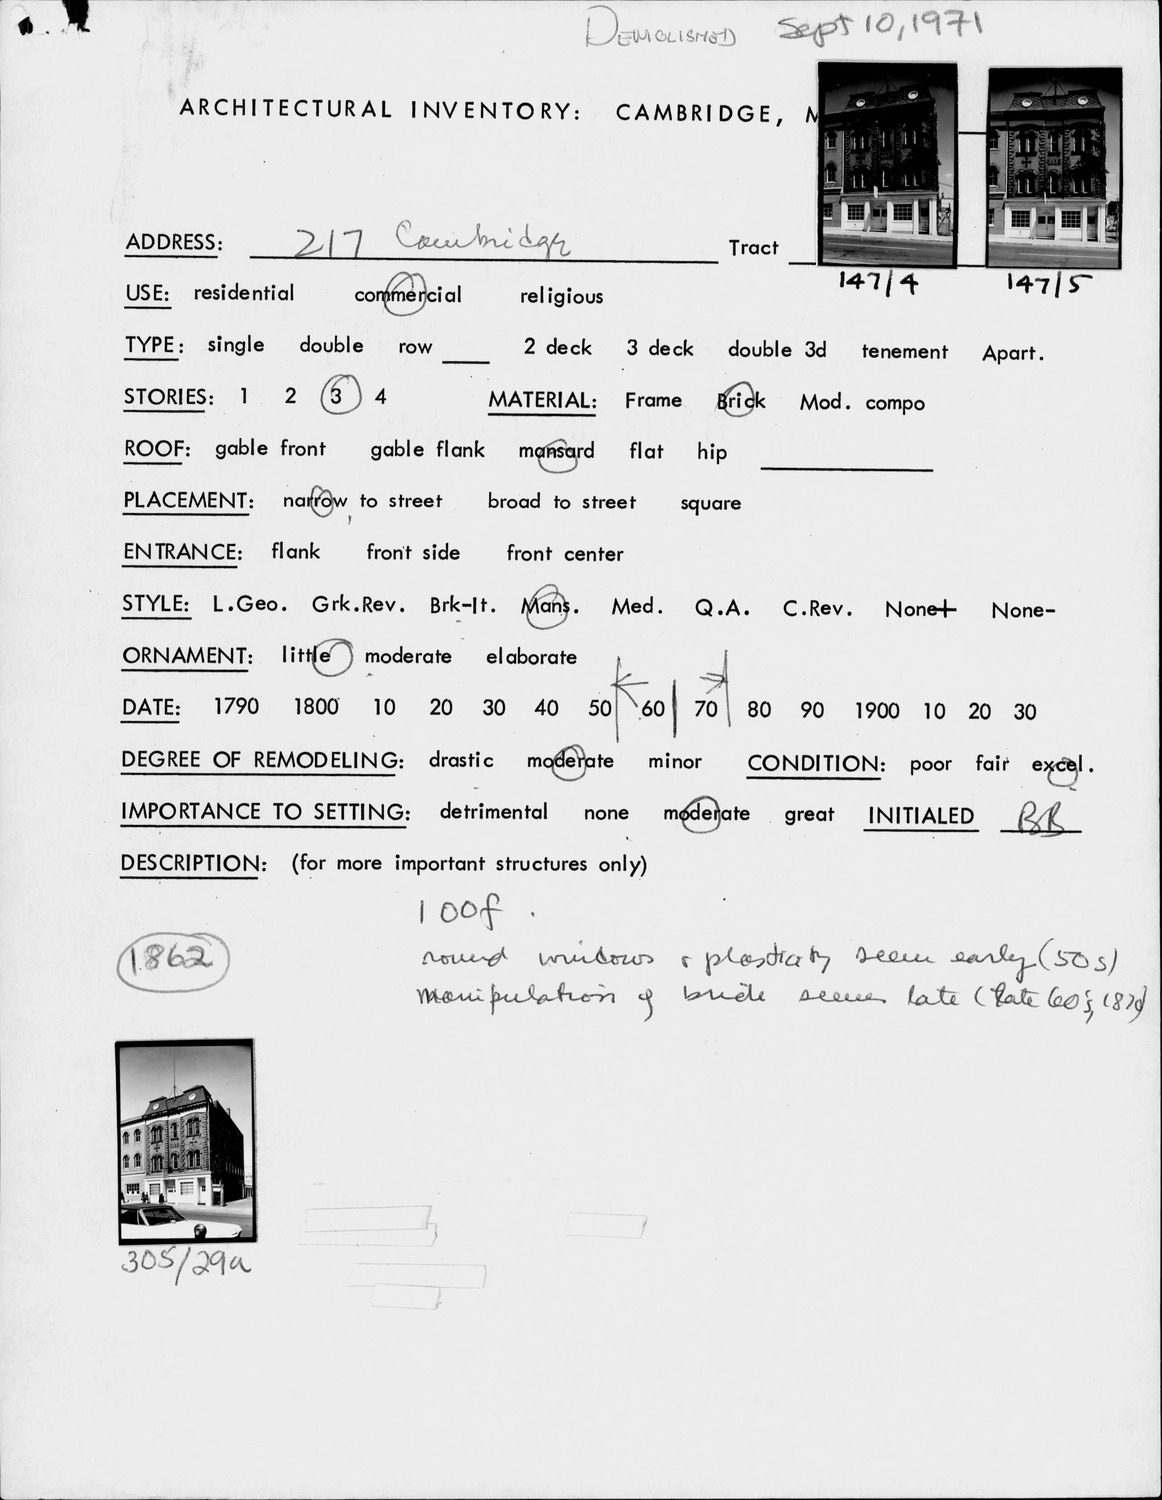 DEMOLISHED Sept 10, 1971
ARCHITECTURAL INVENTORY: CAMBRIDGE, M
ADDRESS: 217 Cambridge Tract
147/4 147/5
USE: residential commercial religious
TYPE: single double row 2 deck 3 deck double 3d tenement Apart.
STORIES: 1 2 3 4 MATERIAL: Frame Brick Mod. compo
ROOF: gable front gable flank mansard flat hip
PLACEMENT: narrow to street broad to street square
ENTRANCE: flank front side front center
STYLE: L.Geo. Grk.Rev. Brk-It. Mans. Med. Q.A. C.Rev. None+ None-
ORNAMENT: little moderate elaborate
DATE: 1790 1800 10 20 30 40 50 60 70 80 90 1900 10 20 30
DEGREE OF REMODELING: drastic moderate minor CONDITION: poor fair excel.
IMPORTANCE TO SETTING: detrimental none moderate great INITIALED BB
DESCRIPTION: (for more important structures only)
100f.
1862
round windows & plasticity seem early (50s)
Manipulation of brick seems late (late 60's,
305/29a